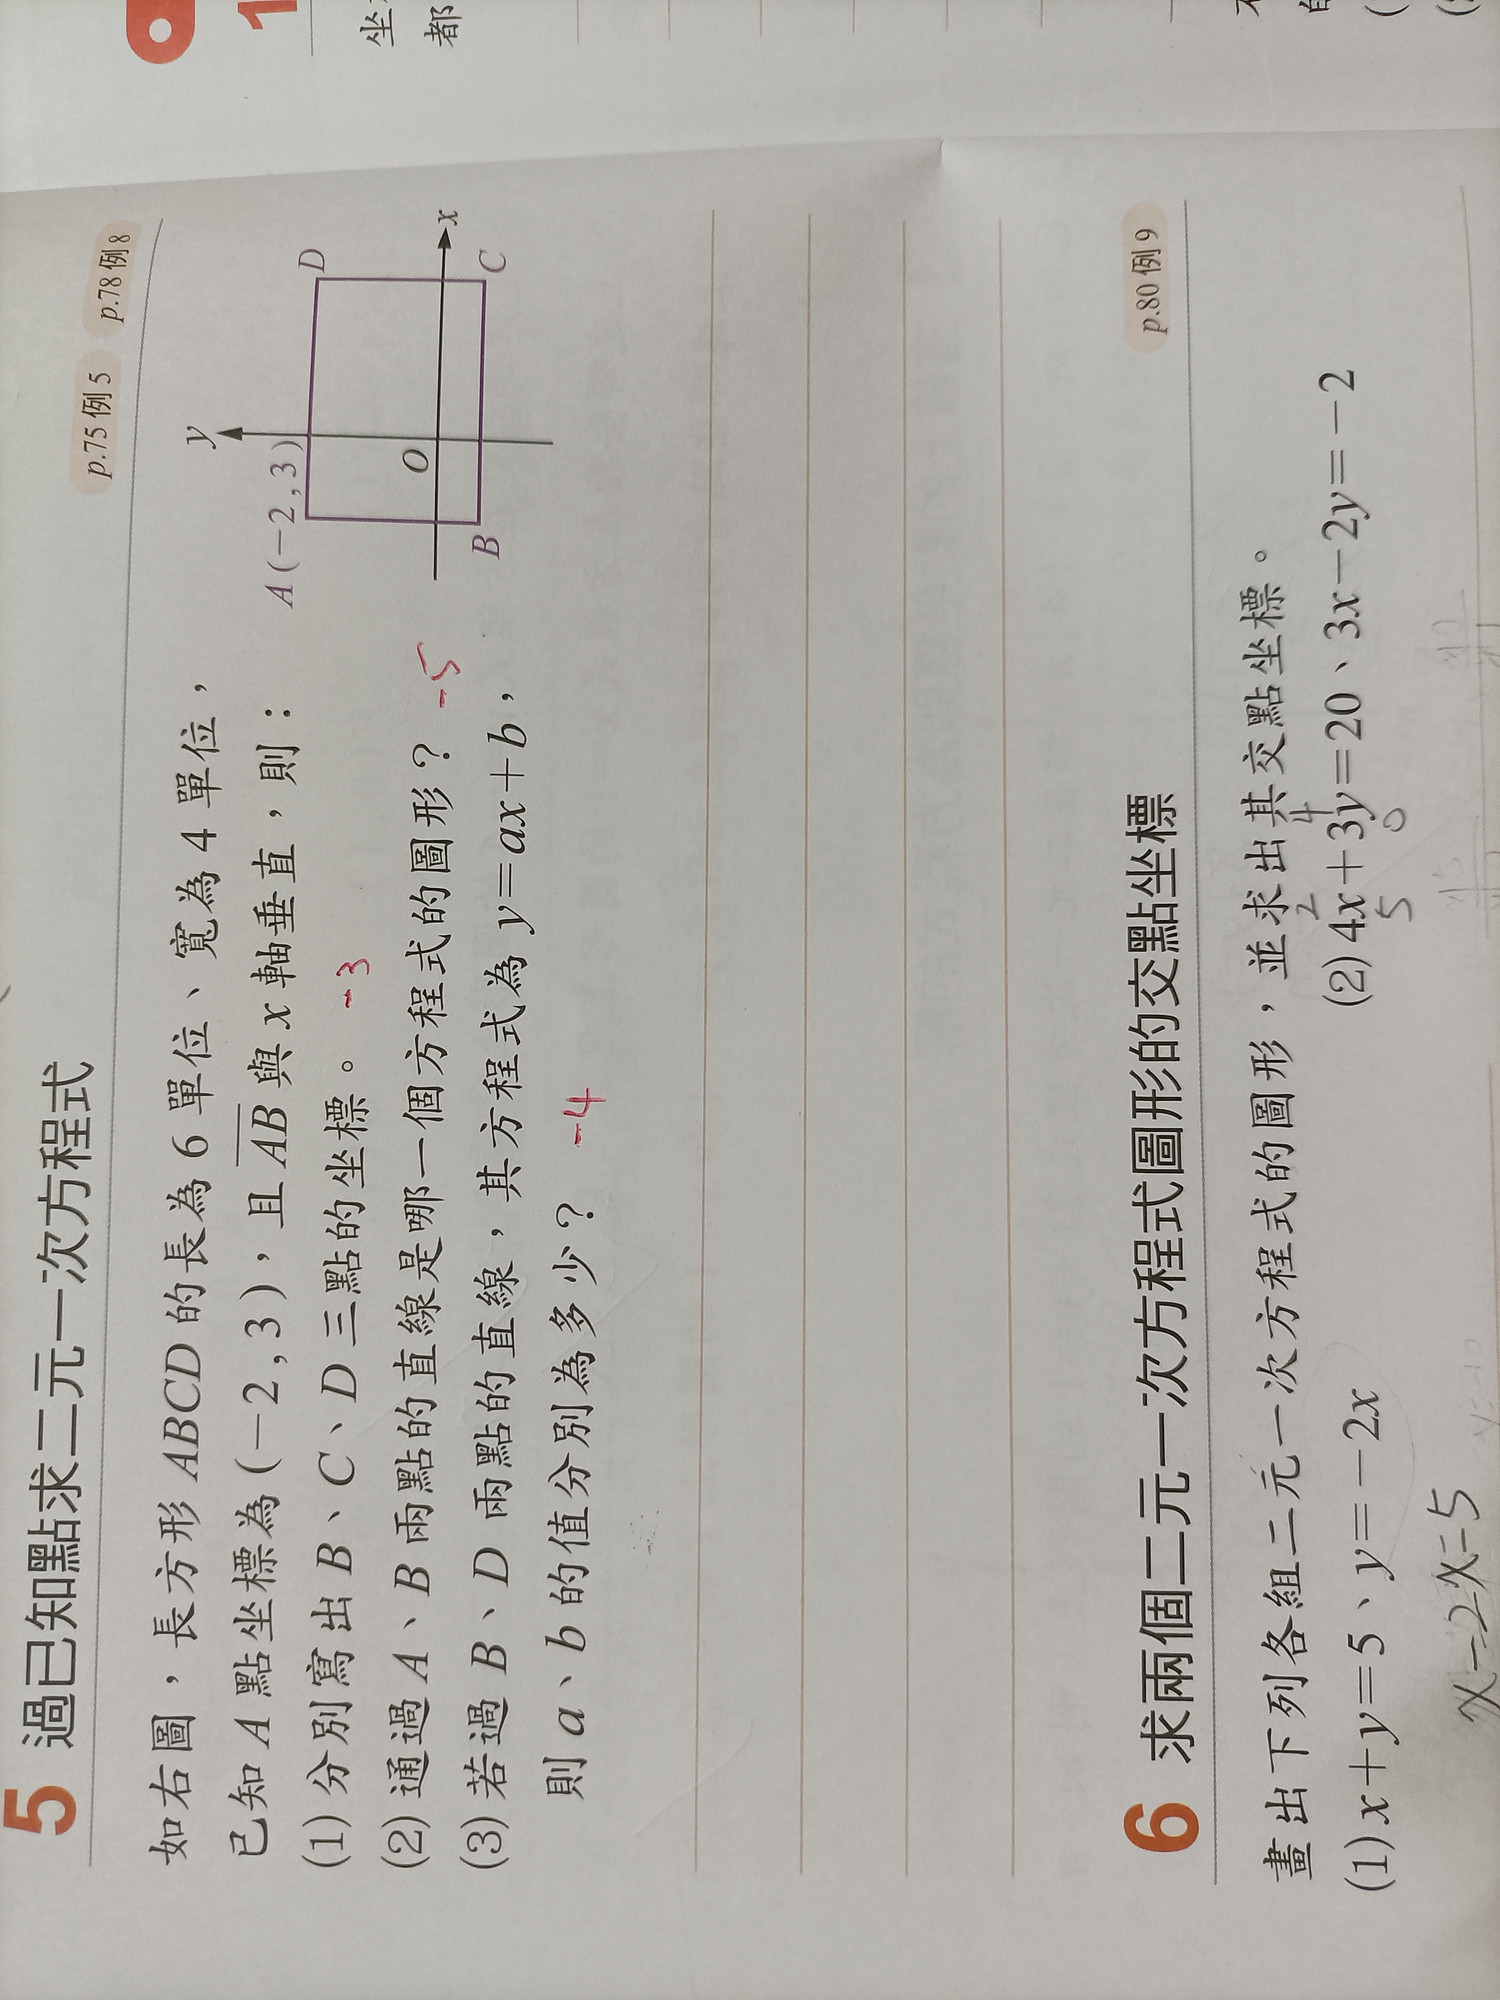 5 過已知點求二元一次方程式
p.75 例 5 p.78 例 8
如右圖，長方形 ABCD 的長為 6 單位、寬為 4 單位，
已知 A 點坐標為 (−2 , 3)，且 AB 與 x 軸垂直，則：
(1) 分別寫出 B、C、D 三點的坐標。 -3
(2) 通過 A、B 兩點的直線是哪一個方程式的圖形？ -5
(3) 若過 B、D 兩點的直線，其方程式為 y＝ax＋b，
則 a、b 的值分別為多少？ -4
y
A (−2 , 3)
D
O
x
B
C
6 求兩個二元一次方程式圖形的交點坐標
p.80 例 9
畫出下列各組二元一次方程式的圖形，並求出其交點坐標。
2 4
(1) x＋y＝5、y＝−2x
(2) 4x＋3y＝20、3x−2y＝−2
5 0
x-2x=5
1
坐
都